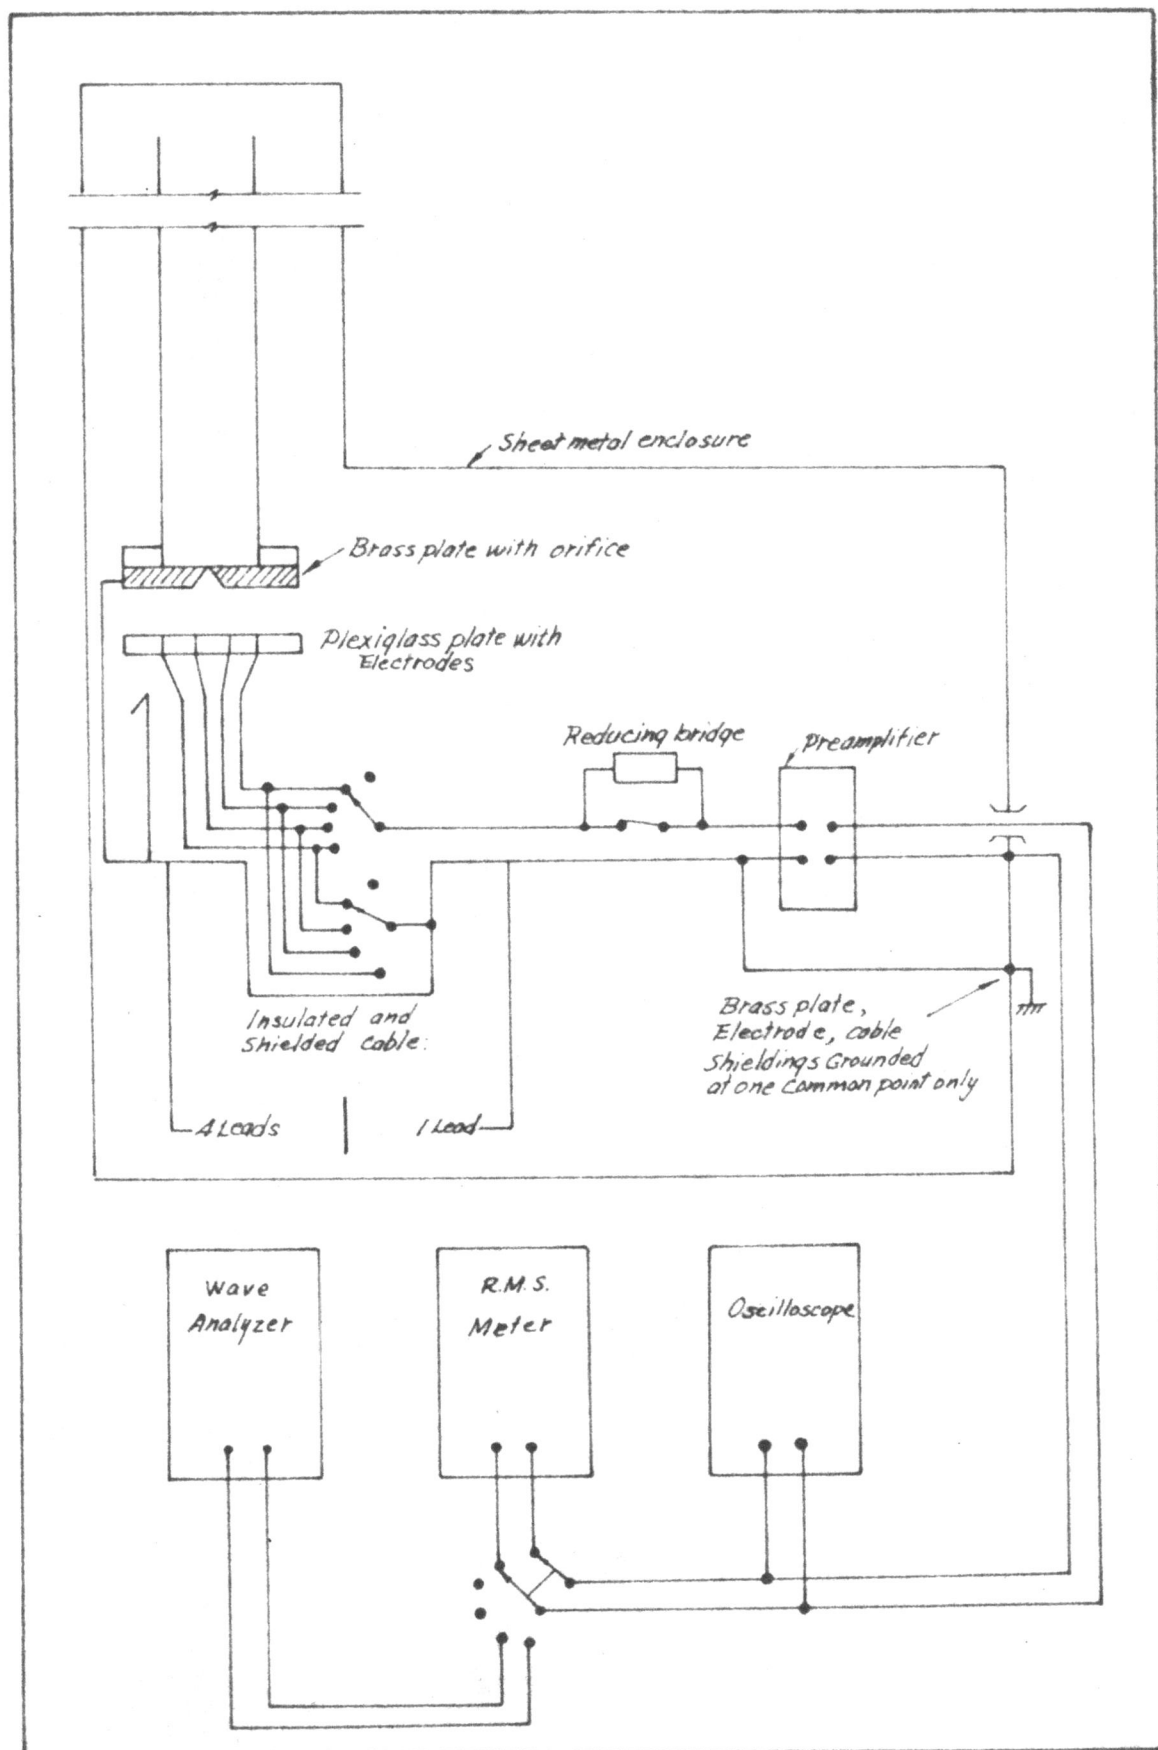 Sheet metal enclosure
Brass plate with orifice
Plexiglass plate with
Electrodes
Reducing bridge
Preamplifier
Insulated and
Shielded Cable:
Brass plate,
Electrode, cable
Shieldings Grounded
at one common point only
4 Leads
1 Lead
Wave
Analyzer
R.M.S.
Meter
Oscilloscope